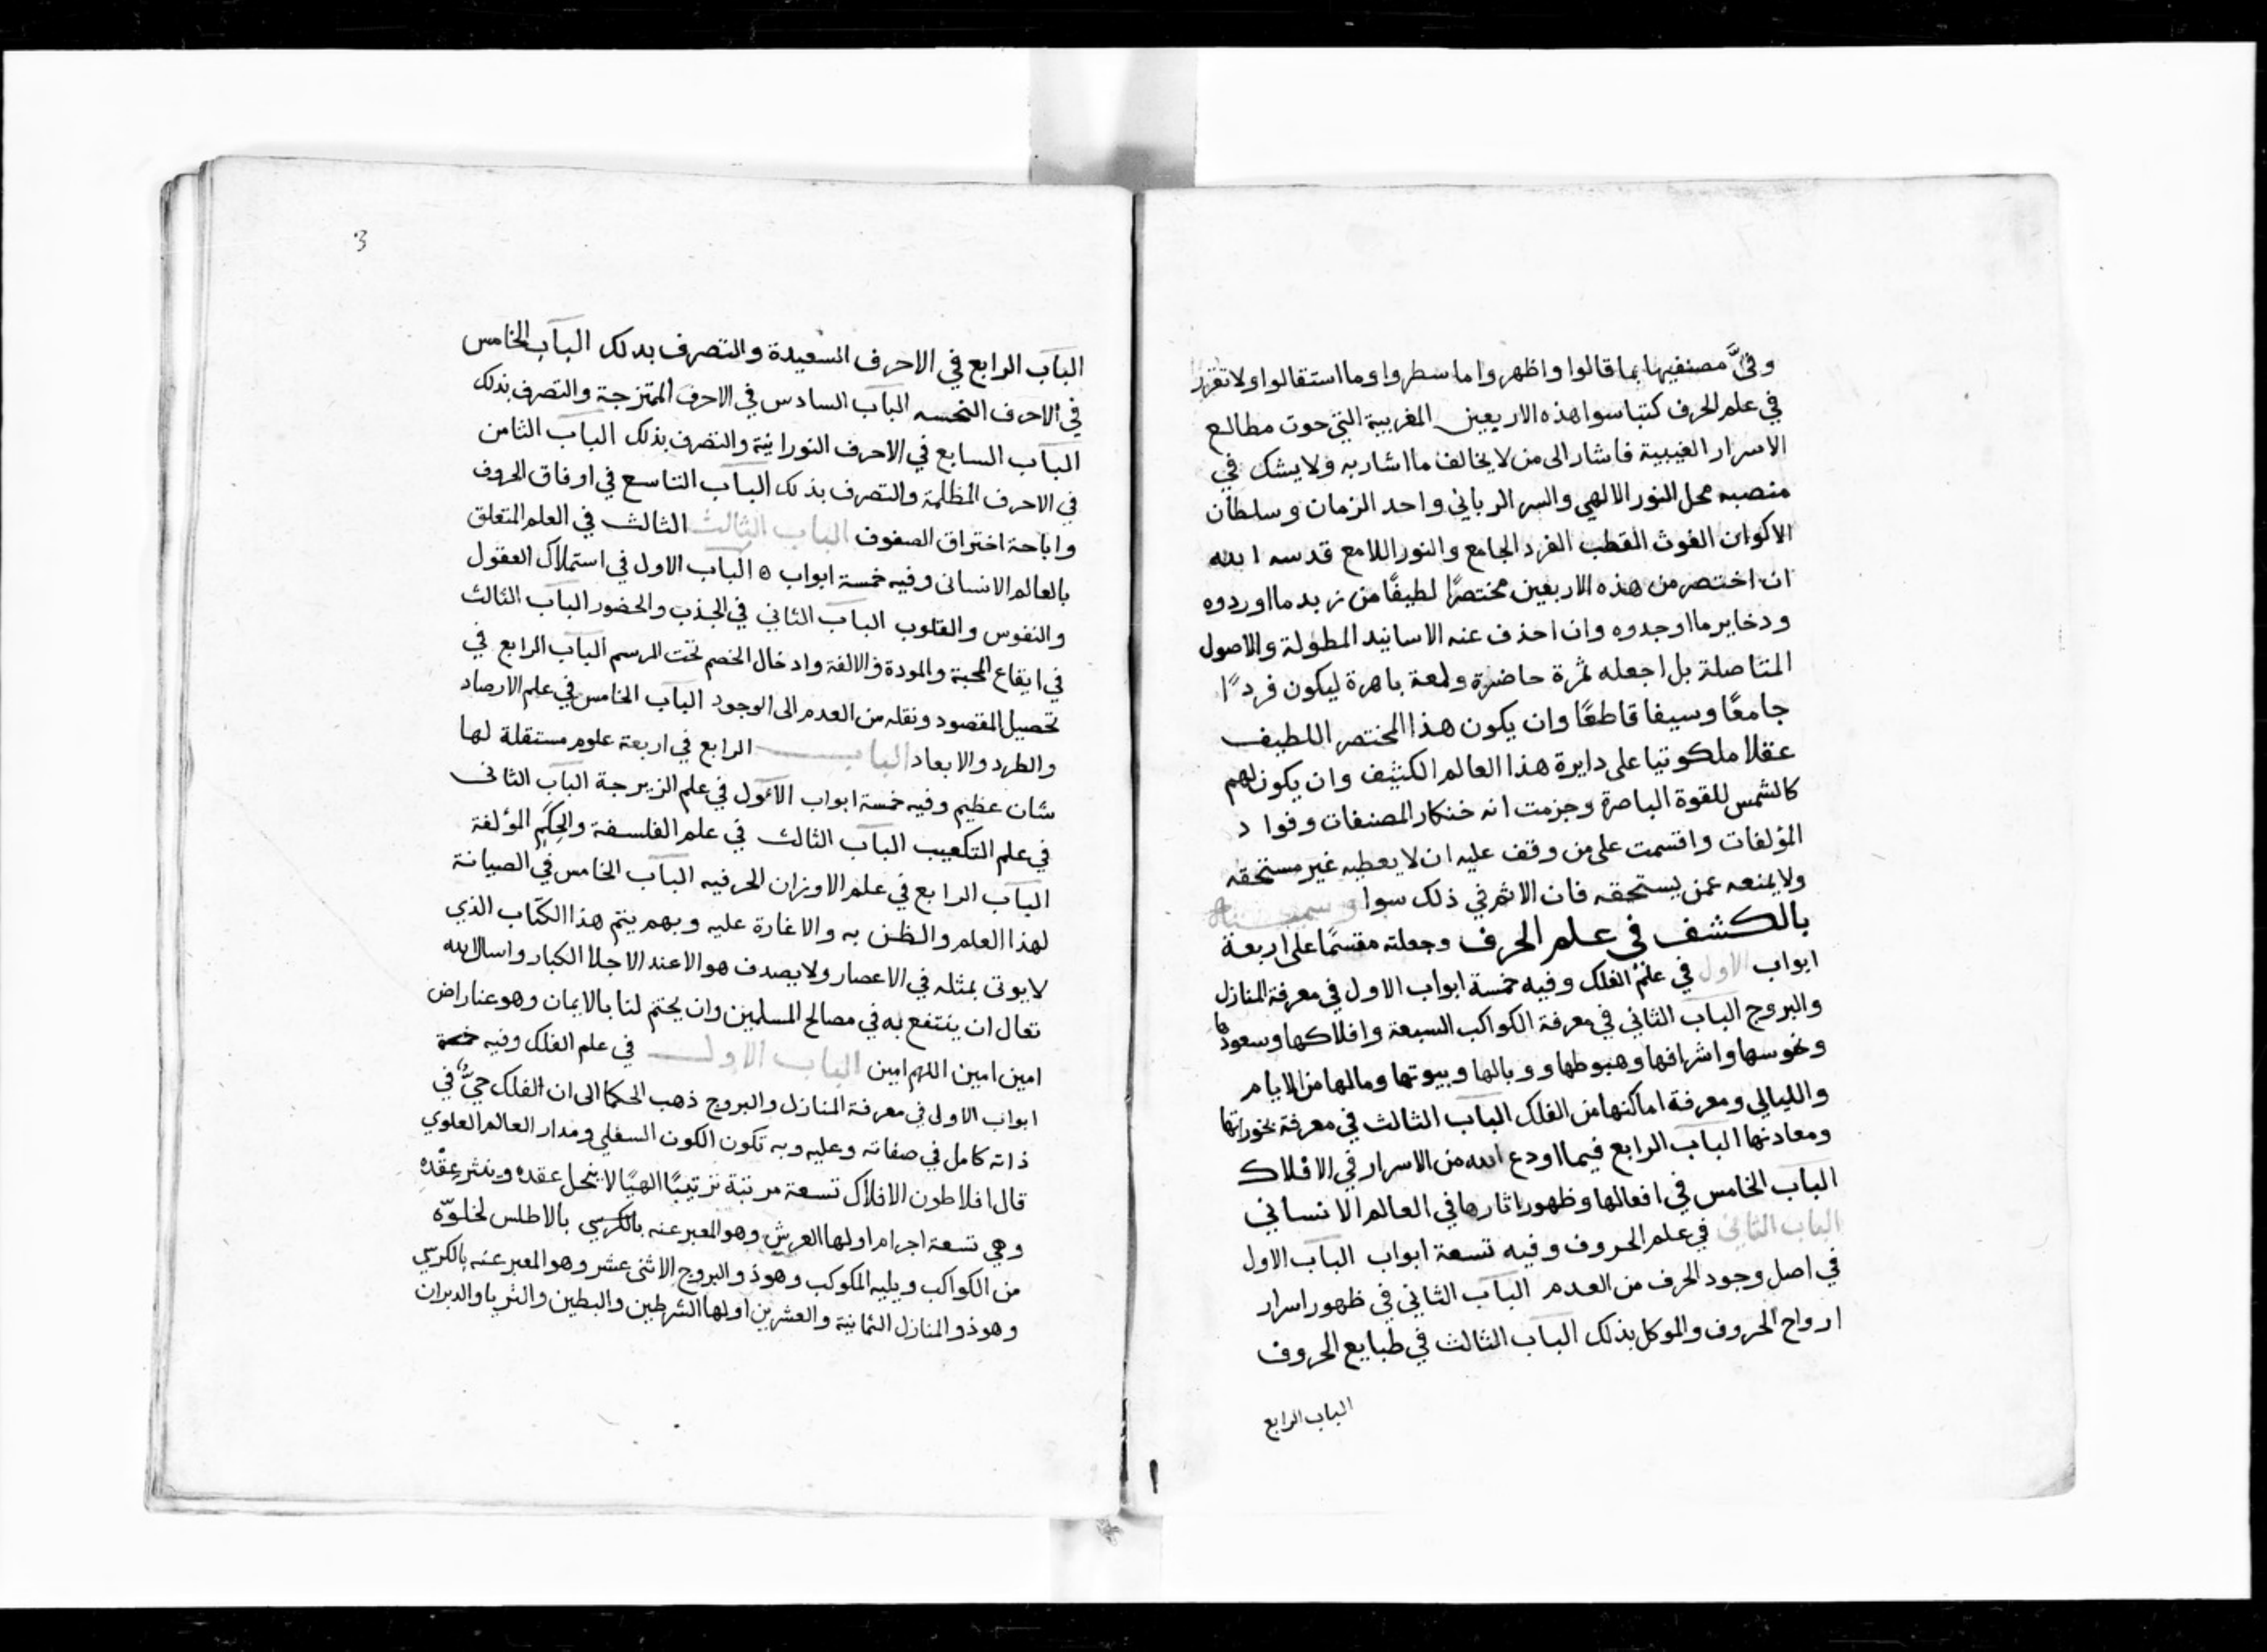 وفيَّ مصنفيها بما قالوا واظهروا ما سطروا وما استقالوا ولا تقرر
في علم الحرف كتبا سوا هذه الاربعين المغربية التي حوت مطالع
الاسرار الغيبية فاشار الى من لا يخالف ما اشار به ولا يشك في
منصبه محل النور الالهي والسر الرباني واحد الزمان وسلطان
الاكوان الغوث القطب الفرد الجامع والنور اللامع قدسه الله
ان اختصر من هذه الاربعين مختصرًا لطيفًا من زبد ما اوردوه
ودخاير ما اوجدوه وان احذف عنه الاسانيد المطولة والاصول
المتاصلة بل اجعله ثمرة حاضرة ولمعة باهرة ليكون فردًا
جامعًا وسيفا قاطعًا وان يكون هذا المختصر اللطيف
عقلا ملكوتيا على دايرة هذا العالم الكثيف وان يكون لهم
كالشمس للقوة الباصرة وجزمت انه خنكار المصنفات وفواد
المؤلفات واقسمت على من وقف عليه ان لا يعطيه غير مستحقه
ولا يمنعه عمن يستحقه فان الاثم في ذلك سوا
بالكشف في علم الحرف وجعلته مقسمًا على اربعة
ابواب الاول في علم الفلك وفيه خمسة ابواب الاول في معرفة المنازل
والبروج الباب الثاني في معرفة الكواكب السبعة وافلاكها وسعودها
ونحوسها واشرافها وهبوطها ووبالها وبيوتها ومالها من الايام
والليالي ومعرفة اماكنها من الفلك الباب الثالث في معرفة بخوراتها
ومعادنها الباب الرابع فيما اودع الله من الاسرار في الافلاك
الباب الخامس في افعالها وظهور اثارها في العالم الانساني
الباب الثاني في علم الحروف وفيه تسعة ابواب الباب الاول
في اصل وجود الحرف من العدم الباب الثاني في ظهور اسرار
ارواح الحروف والموكل بذلك الباب الثالث في طبايع الحروف
الباب الرابع
3
الباب الرابع في الاحرف السعيدة والتصرف بدلك الباب الخامس
في الاحرف النحسه الباب السادس في الاحرف الممتزجة والتصرف بذلك
الباب السابع في الاحرف النورانية والتصرف بذلك الباب الثامن
في الاحرف المظلمة والتصرف بذلك الباب التاسع في اوفاق الحروف
واباحة اختراق الصفوف الباب الثالث الثالث في العلم المتعلق
بالعالم الانسانى وفيه خمسة ابواب ه الباب الاول في استملاك العقول
والنفوس والقلوب الباب الثاني في الجذب والحضور الباب الثالث
في ايقاع المحبة والمودة والالفة وادخال الخصم تحت المرسم الباب الرابع في
تحصيل المقصود ونقله من العدم الى الوجود الباب الخامس في علم الارصاد
والطرد والابعاد الباب الرابع في اربعة علوم مستقلة لها
شان عظيم وفيه خمسة ابواب الاول في علم الزيرجة الباب الثانى
في علم التكعيب الباب الثالث في علم الفلسفة والحِكَم المؤلفة
الباب الرابع في علم الاوزان الحرفيه الباب الخامس في الصيانة
لهذا العلم والظن به والاغارة عليه وبهم يتم هذا الكتاب الذي
لا يوتى بمثله في الاعصار ولا يصدف هو الا عند الاجلا الكبار واسال الله
تعال ان ينتفع به في مصالح المسلمين وان يختم لنا بالايمان وهو عنا راض
امين امين اللهم امين الباب الاول في علم الفلك وفيه خمسة
ابواب الاول في معرفة المنازل والبروج ذهب الحكما الى ان الفلك حيٌّ في
ذاته كامل في صفاته وعليه وبه تكون الكون السفلي ومدار العالم العلوي
قال افلاطون الافلاك تسعة مرتبة ترتيبًا الهيًا لا ينحل عقده وينثر عِقْدِه
وهي تسعة اجرام اولها العرش وهو المعبر عنه بالكرسي بالاطلس لخلوّه
من الكواكب ويليه المكوكب وهو ذو البروج الاثنى عشر وهو المعبر عنه بالكرسي
وهو ذو المنازل الثمانية والعشرين اولها الشرطين والبطين والثريا والدبران